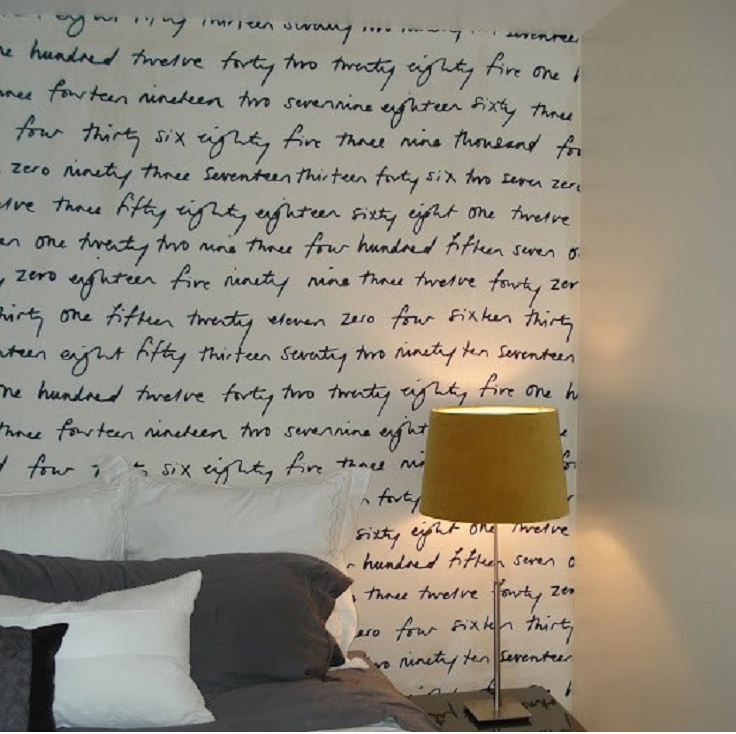 eight fifty thirteen seventy two ninety ten seventeen
one hundred twelve forty two twenty eighty five one h
three fourteen nineteen two sevennine eighteen sixty three
four thirty six eighty five three nine thousand fou
zero ninety three seventeen thirteen forty six two seven zero
elve three fifty eighty eighteen sixty eight one twelve
en one twenty two nine three four hundred fifteen seven o
y zero eighteen five ninety nine three twelve fourty zer
hirty one fifteen twenty eleven zero four sixteen thirty
nteen eight fifty thirteen seventy two ninety ten seventeen
one hundred twelve forty two twenty eighty five one h
three fourteen nineteen two sevennine eight e
d four six eighty five three ni fo
forty
sixty eight one twelve
hundred fifteen seven o
three twelve fourty zer
ero four sixteen thirty
wo ninety ten seventeen